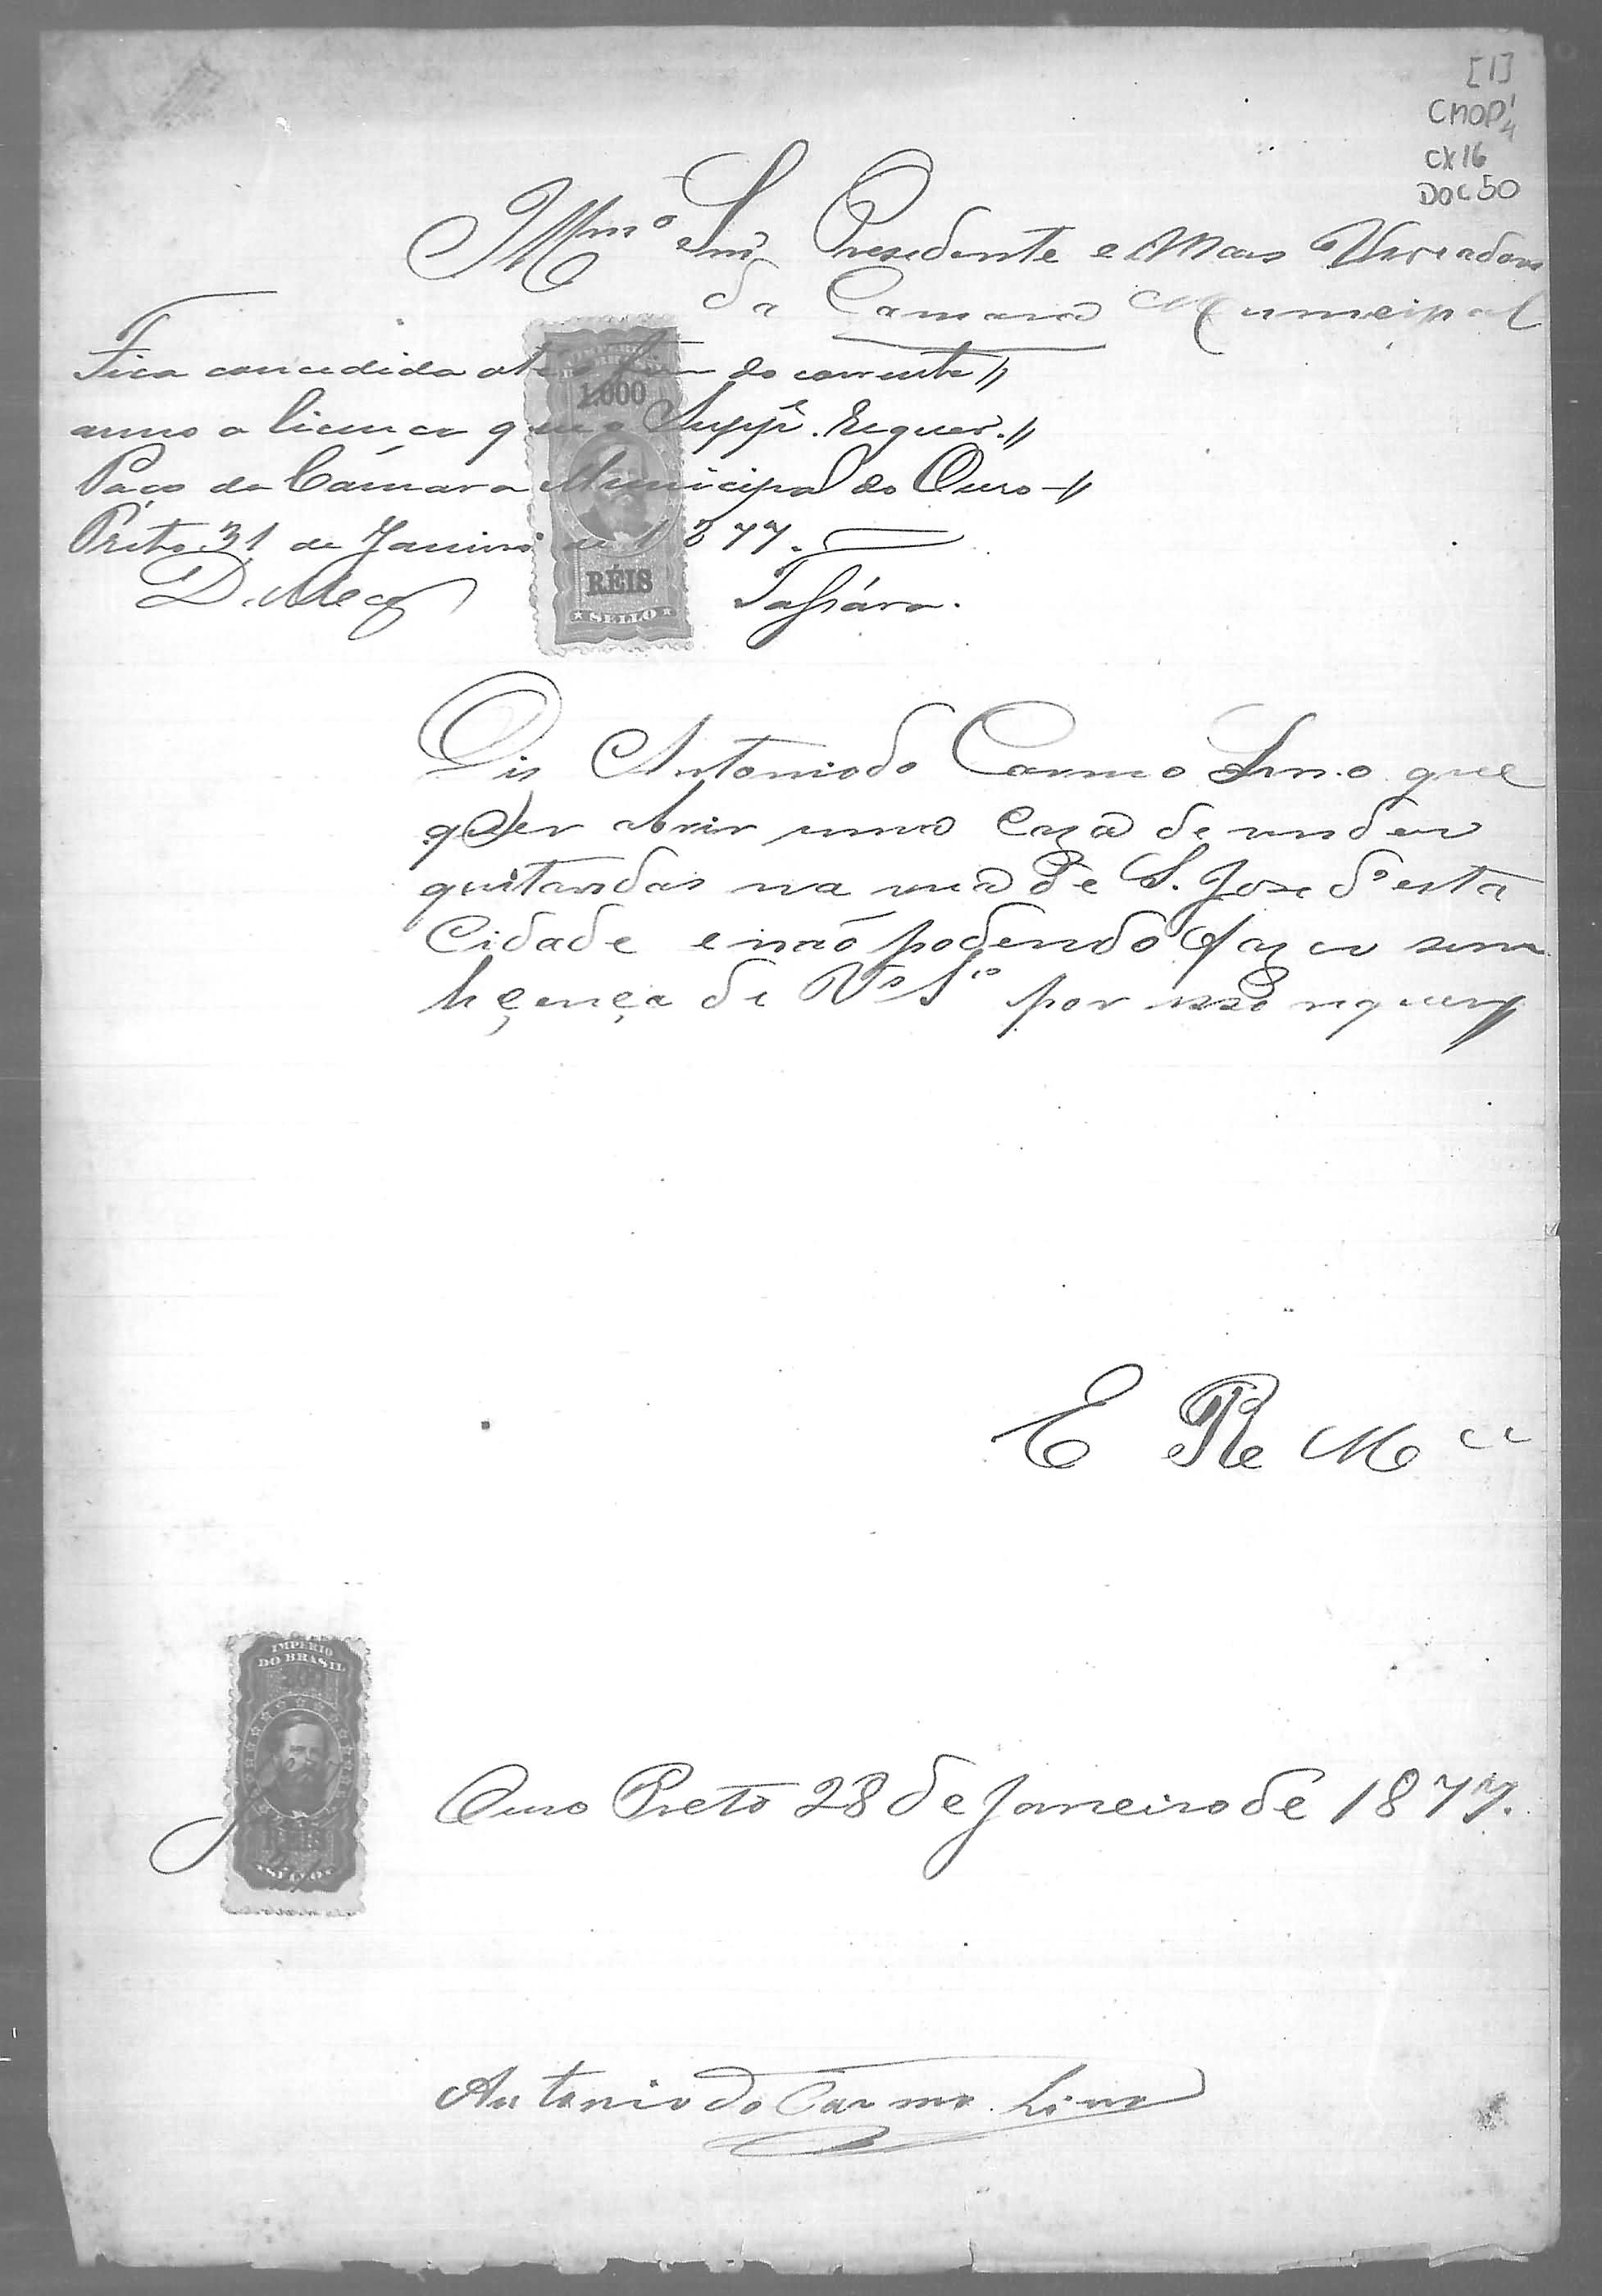 [1]
CMOP
CX16
DOC 50
Illmo Snr Presidente e Mais Veriadores
da Camara Municipal
Fica concedida ate o fim do corrente
anno a licença que o Suppe. Requer.
Paço da Câmara Municipal do Ouro
Preto 31 de Janeiro de 1877.
Tassára.
1.000
RÉIS
SELLO
Dis Antonio do Carmo Lino que
quer abrir uma Caza de vender
quitandas na rua de S. Joze d'esta
Cidade e não podendo fazer sem
liçença de Va Sa por isso requer
E R Mce
IMPERIO
DO BRASIL
SELLO
Ouro Preto 28 de Janeiro de 1877.
Antonio do Carmo Lino